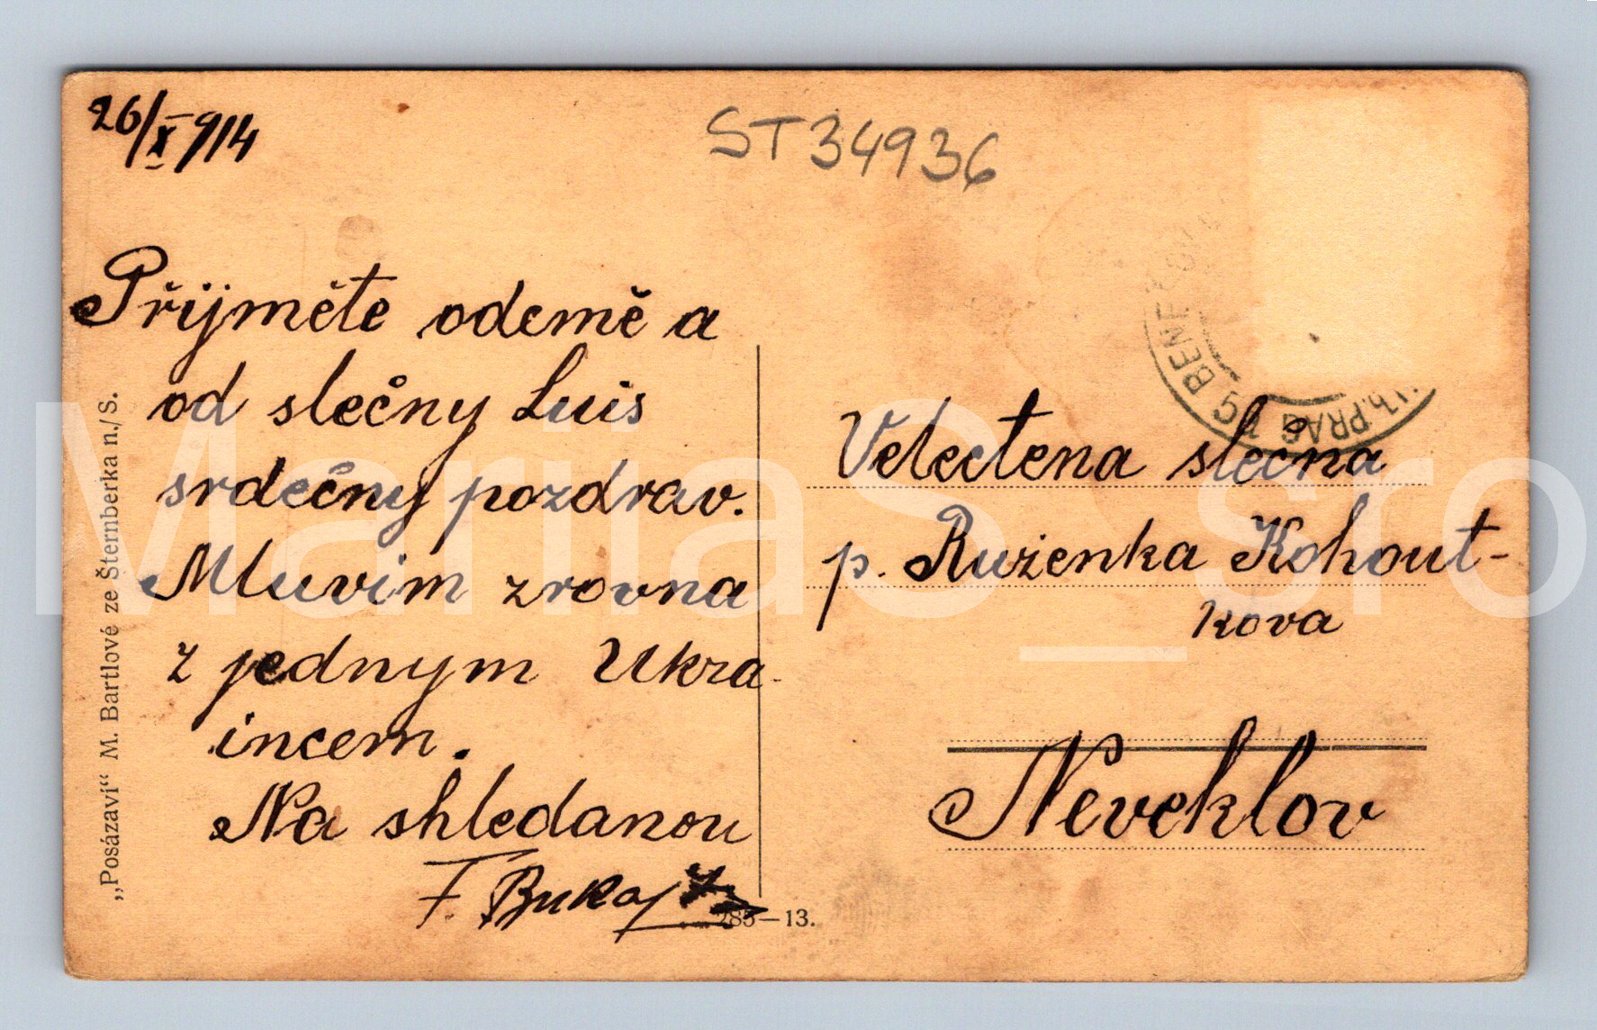 26/X 914
ST34936
Přijměte odemě a
od slečny Luis
srdečny pozdrav.
Mluvim zrovna
z jednym Ukra-
incem.
Na shledanou
F.
285-13.
„Posázaví“ M. Bartlové ze Šternberka n./S.
PRAG
Velectena slečna
p. Ruženka Kohout-
kova
Neveklov
MarijaS_sro